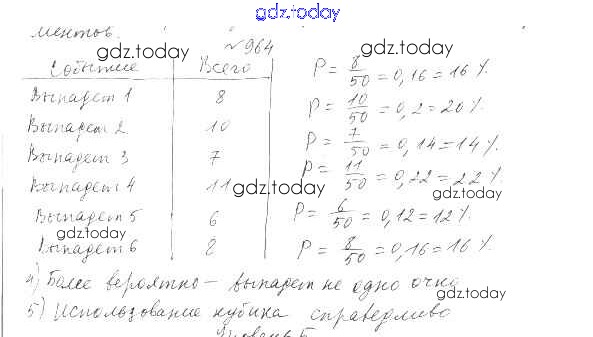 gdz.today
ментов.
№964
gdz.today gdz.today
Событие Всего P = 8/50 = 0,16 = 16 %.
Выпадет 1 8 P = 10/50 = 0,2 = 20 %.
Выпадет 2 10 P = 7/50 = 0,14 = 14 %.
Выпадет 3 7 P = 11/50 = 0,22 = 22 %.
Выпадет 4 11 gdz.today gdz.today
Выпадет 5 6 P = 6/50 = 0,12 = 12 %.
gdz.today
Выпадет 6 8 P = 8/50 = 0,16 = 16 %.
4) Более вероятно – выпадет не одно очко
gdz.today
5) Использование кубика справедливо